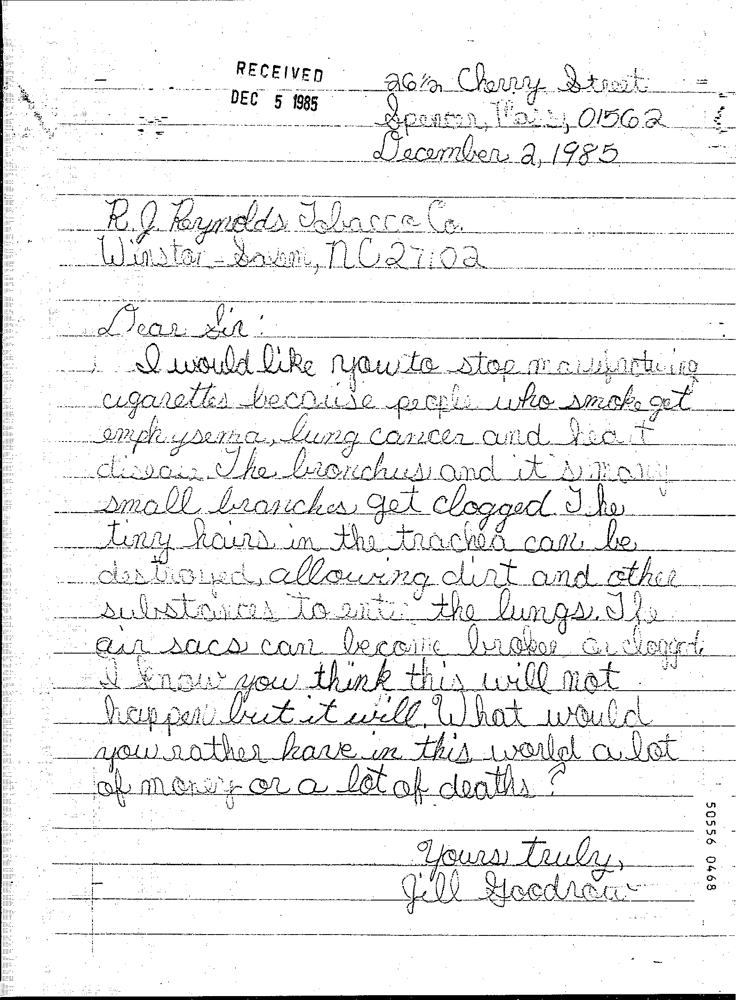 RECEIVED
DEC 5 1985
26½ Cherry Street
Spencer, Mass, 01562
December 2, 1985
R.J. Reynolds Tobacco Co.
Winston-Salem, NC 27102
Dear Sir:
I would like you to stop manufacturing
cigarettes because people who smoke get
emphysema, lung cancer and heart
disease. The bronchus and it's many
small branches get clogged. The
tiny hairs in the trachea can be
destroyed, allowing dirt and other
substances to enter the lungs. The
air sacs can become broken or clogged.
I know you think this will not
happen but it will. What would
you rather have in this world a lot
of money or a lot of deaths?
Yours truly,
Jill Goodrow
50556 0468